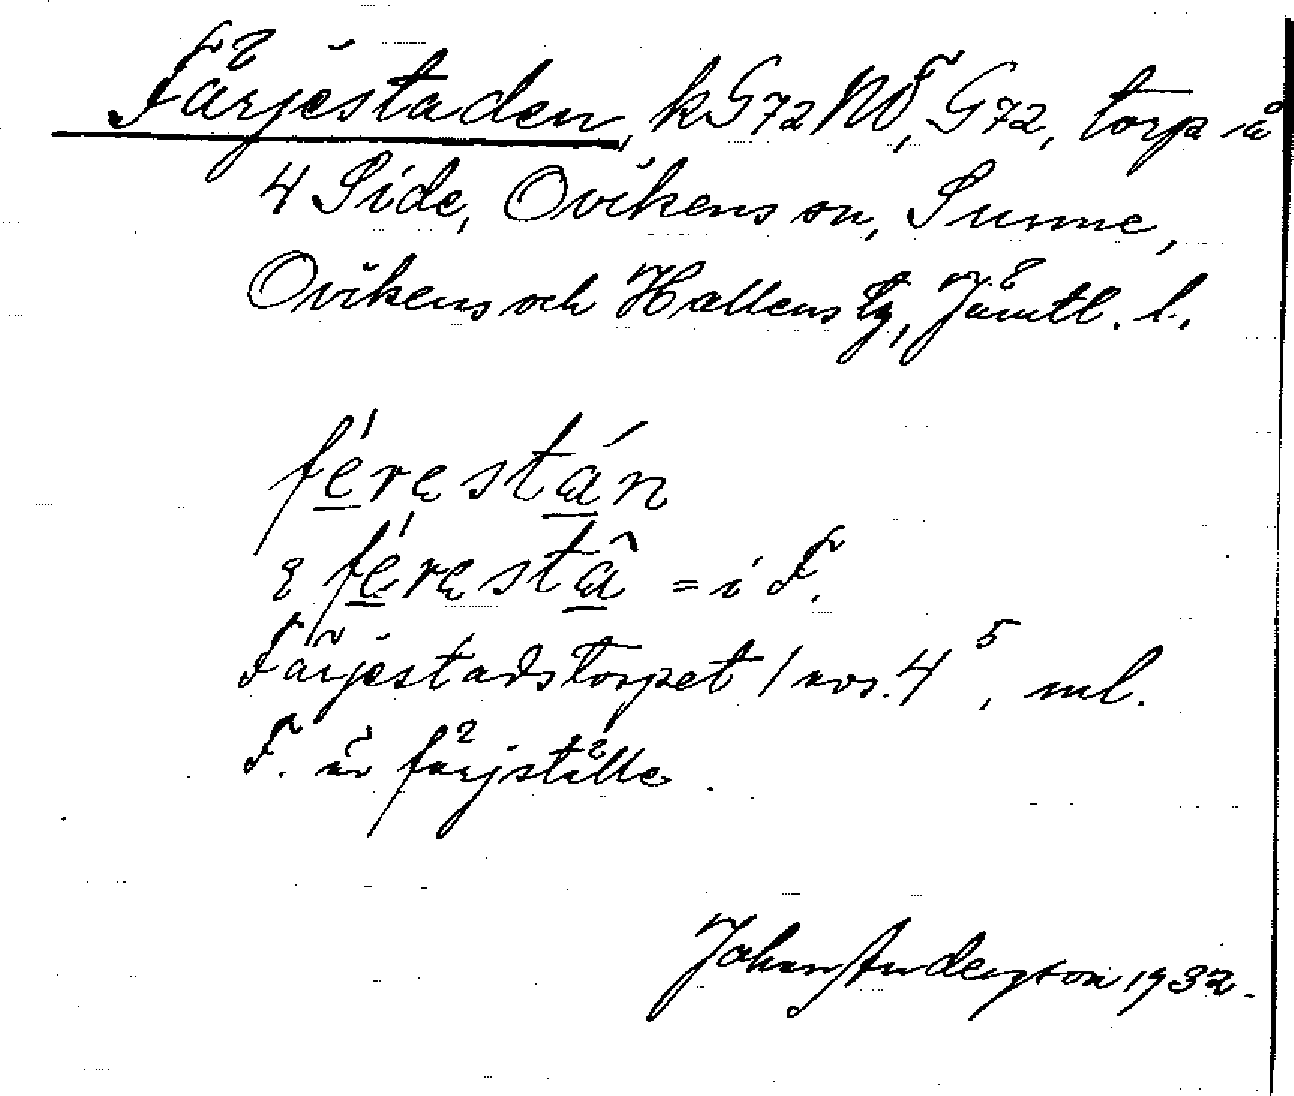 Färjestaden, k G72 NÖ, G72, torp å
4 Side, Ovikens sn, Sunne,
Ovikens och Hallens tg, Jämtl. l.
férestán
2 férestâ = i F.
Färjestadstorpet / avs. 4⁵, ml.
F. är färjställe.
Johan Anderzson 1932.